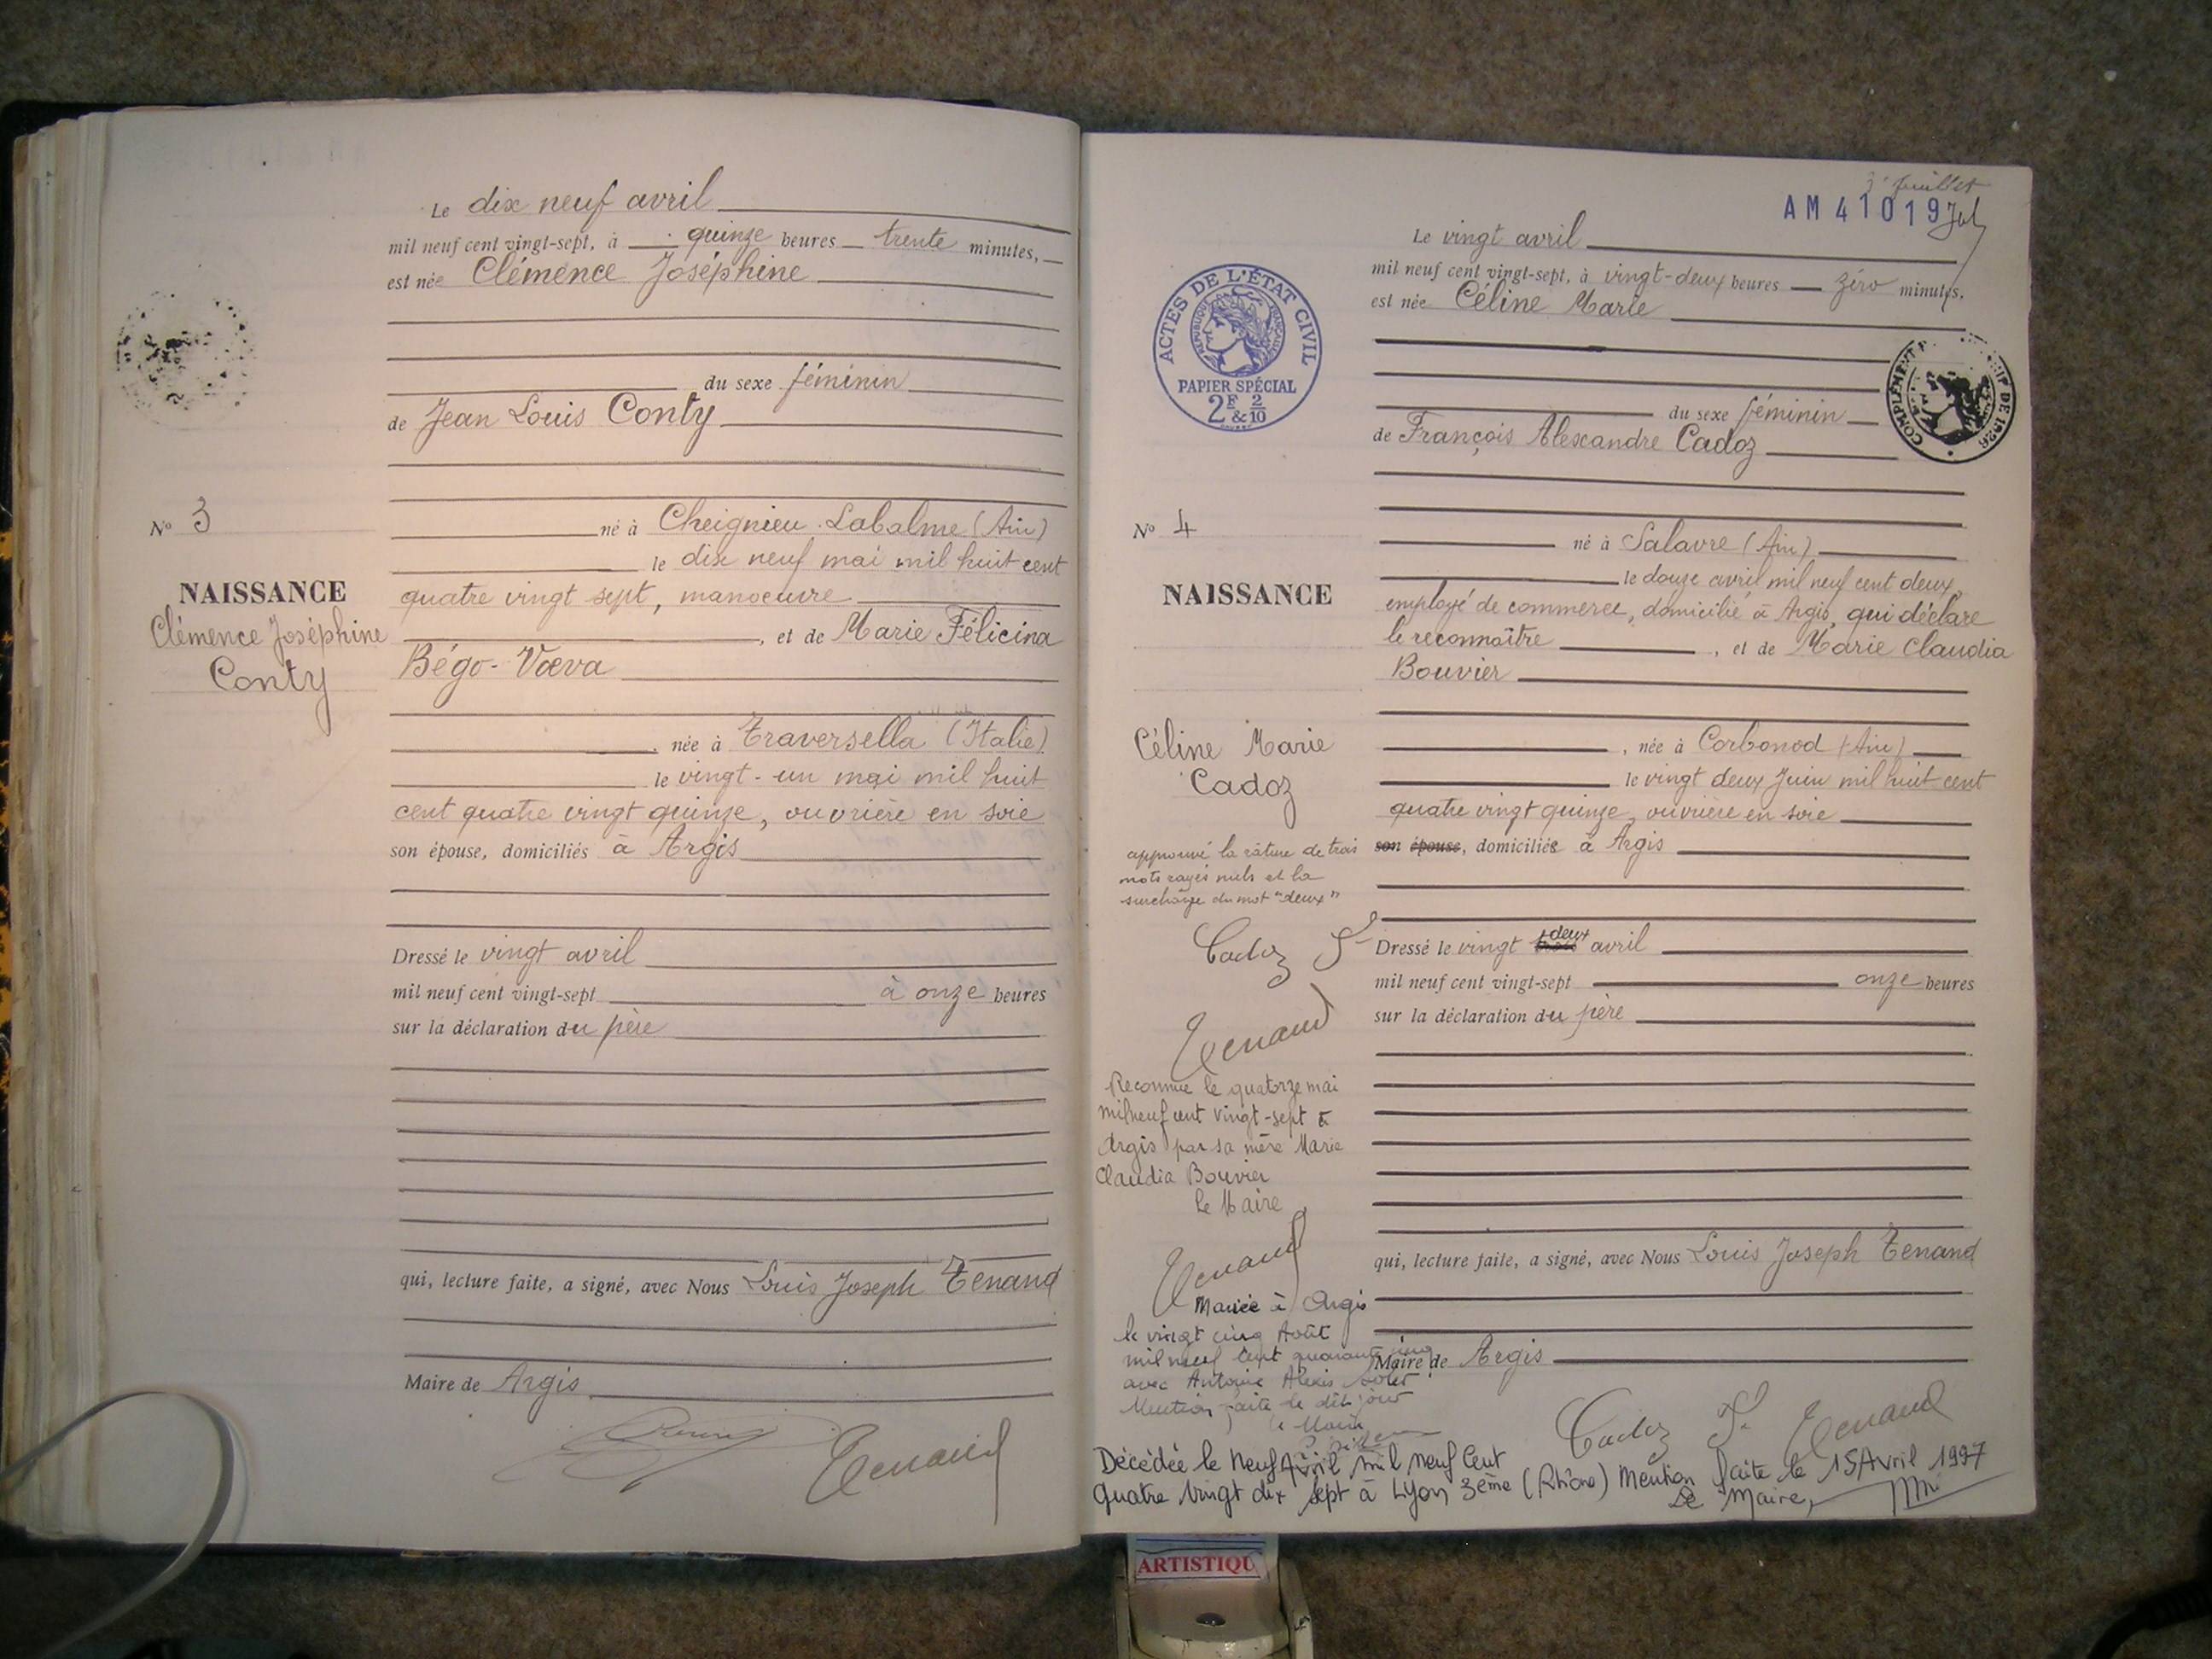 Le dix neuf avril
mil neuf cent vingt-sept, à quinze heures trente minutes,
est née Clémence Joséphine
du sexe féminin
de Jean Louis Conty
né à Cheignieu-Labalme (Ain)
le dix neuf mai mil huit cent
quatre vingt sept, manoeuvre
, et de Marie Félicina
Bégo-
, née à Traversella (Italie)
le vingt-un mai mil huit
cent quatre vingt quinze, ouvrière en soie
son épouse, domiciliés à Argis
Dressé le vingt avril
mil neuf cent vingt-sept à onze heures
sur la déclaration du père
qui, lecture faite, a signé, avec Nous Louis Joseph Tenand
Maire de Argis
Tenand
N° 3
NAISSANCE
Clémence Joséphine
Conty
3e feuillet
AM 41019
Le vingt avril
mil neuf cent vingt-sept, à vingt-deux heures zéro minutes,
est née Céline Marie
du sexe féminin
de François Alexandre Cadoz
né à Salavre (Ain)
le douze avril mil neuf cent deux,
employé de commerce, domicilié à Argis, qui déclare
le reconnaître, et de Marie Claudia
Bouvier
, née à Corbonod (Ain)
le vingt deux Juin mil huit cent
quatre vingt quinze, ouvrière en soie
son épouse, domiciliés à Argis
Dressé le vingt trois deux avril
mil neuf cent vingt-sept onze heures
sur la déclaration du père
qui, lecture faite, a signé, avec Nous Louis Joseph Tenand
Maire de Argis
Cadoz F. Tenand
ACTES DE L'ÉTAT CIVIL
RÉPUBLIQUE FRANÇAISE
PAPIER SPÉCIAL
2F & 2/10
COMPLÉMENT DE 1926
N° 4
NAISSANCE
Céline Marie
Cadoz
approuvé la râture de trois
mots rayés nuls et la
surcharge du mot "deux"
Cadoz F
Tenand
Reconnue le quatorze mai
mil neuf cent vingt-sept à
Argis par sa mère Marie
Claudia Bouvier
Le Maire
Tenand
Mariée à Argis
le vingt cinq Août
mil neuf cent quarante cinq
avec Antoine Alexis
Mention faite le dit jour
le Maire
Décédée le neuf Avril mil neuf cent
quatre vingt dix sept à Lyon 3ème (Rhône) Mention faite le 15 Avril 1997
Le Maire,
ARTISTIQU